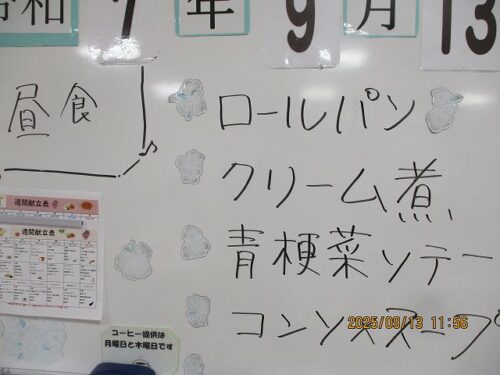 令和 7 年 9 月 13
昼食
ロールパン
クリーム煮
青梗菜ソテー
コンソメスープ
週間献立表
週間献立表
コーヒー提供は
月曜日と木曜日です
2025/09/13 11:56